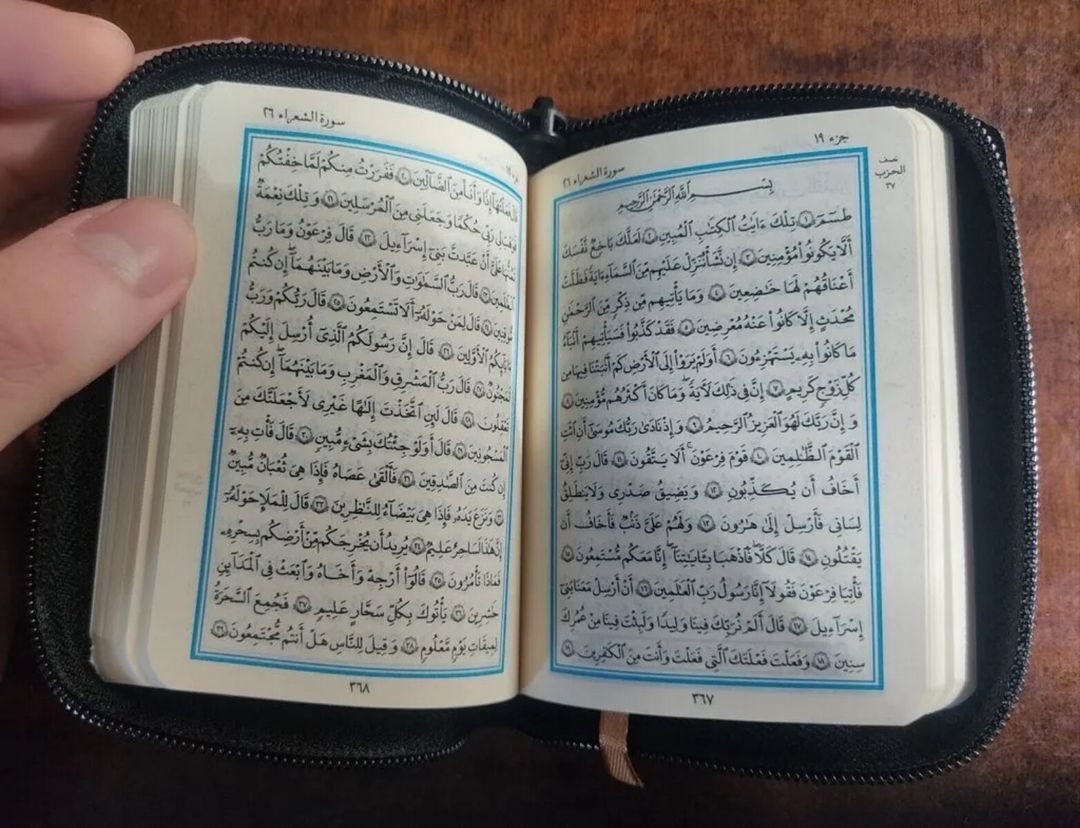 جزء ١٩
سورة الشعراء ٢٦
نصف
الحزب
٣٧
بِسْمِ ٱللَّهِ ٱلرَّحْمَٰنِ ٱلرَّحِيمِ
طسٓمٓ ١ تِلْكَ ءَايَٰتُ ٱلْكِتَٰبِ ٱلْمُبِينِ ٢ لَعَلَّكَ بَٰخِعٌ نَّفْسَكَ
أَلَّا يَكُونُوا۟ مُؤْمِنِينَ ٣ إِن نَّشَأْ نُنَزِّلْ عَلَيْهِم مِّنَ ٱلسَّمَآءِ ءَايَةً فَظَلَّتْ
أَعْنَٰقُهُمْ لَهَا خَٰضِعِينَ ٤ وَمَا يَأْتِيهِم مِّن ذِكْرٍ مِّنَ ٱلرَّحْمَٰنِ
مُحْدَثٍ إِلَّا كَانُوا۟ عَنْهُ مُعْرِضِينَ ٥ فَقَدْ كَذَّبُوا۟ فَسَيَأْتِيهِمْ أَنۢبَٰٓؤُا۟
مَا كَانُوا۟ بِهِۦ يَسْتَهْزِءُونَ ٦ أَوَلَمْ يَرَوْا۟ إِلَى ٱلْأَرْضِ كَمْ أَنۢبَتْنَا فِيهَا مِن
كُلِّ زَوْجٍ كَرِيمٍ ٧ إِنَّ فِى ذَٰلِكَ لَءَايَةً وَمَا كَانَ أَكْثَرُهُم مُّؤْمِنِينَ ٨
وَإِنَّ رَبَّكَ لَهُوَ ٱلْعَزِيزُ ٱلرَّحِيمُ ٩ وَإِذْ نَادَىٰ رَبُّكَ مُوسَىٰٓ أَنِ ٱئْتِ
ٱلْقَوْمَ ٱلظَّٰلِمِينَ ١٠ قَوْمَ فِرْعَوْنَ أَلَا يَتَّقُونَ ١١ قَالَ رَبِّ إِنِّىٓ
أَخَافُ أَن يُكَذِّبُونِ ١٢ وَيَضِيقُ صَدْرِى وَلَا يَنطَلِقُ
لِسَانِى فَأَرْسِلْ إِلَىٰ هَٰرُونَ ١٣ وَلَهُمْ عَلَىَّ ذَنۢبٌ فَأَخَافُ أَن
يَقْتُلُونِ ١٤ قَالَ كَلَّا فَٱذْهَبَا بِـَٔايَٰتِنَآ إِنَّا مَعَكُم مُّسْتَمِعُونَ ١٥
فَأْتِيَا فِرْعَوْنَ فَقُولَآ إِنَّا رَسُولُ رَبِّ ٱلْعَٰلَمِينَ ١٦ أَنْ أَرْسِلْ مَعَنَا بَنِىٓ
إِسْرَٰٓءِيلَ ١٧ قَالَ أَلَمْ نُرَبِّكَ فِينَا وَلِيدًا وَلَبِثْتَ فِينَا مِنْ عُمُرِكَ
سِنِينَ ١٨ وَفَعَلْتَ فَعْلَتَكَ ٱلَّتِى فَعَلْتَ وَأَنتَ مِنَ ٱلْكَٰفِرِينَ ١٩
٣٦٧
سورة الشعراء ٢٦
قَالَ فَعَلْتُهَآ إِذًا وَأَنَا۠ مِنَ ٱلضَّآلِّينَ ٢٠ فَفَرَرْتُ مِنكُمْ لَمَّا خِفْتُكُمْ
فَوَهَبَ لِى رَبِّى حُكْمًا وَجَعَلَنِى مِنَ ٱلْمُرْسَلِينَ ٢١ وَتِلْكَ نِعْمَةٌ
تَمُنُّهَا عَلَىَّ أَنْ عَبَّدتَّ بَنِىٓ إِسْرَٰٓءِيلَ ٢٢ قَالَ فِرْعَوْنُ وَمَا رَبُّ
ٱلْعَٰلَمِينَ ٢٣ قَالَ رَبُّ ٱلسَّمَٰوَٰتِ وَٱلْأَرْضِ وَمَا بَيْنَهُمَآ إِن كُنتُم
مُّوقِنِينَ ٢٤ قَالَ لِمَنْ حَوْلَهُۥٓ أَلَا تَسْتَمِعُونَ ٢٥ قَالَ رَبُّكُمْ وَرَبُّ
ءَابَآئِكُمُ ٱلْأَوَّلِينَ ٢٦ قَالَ إِنَّ رَسُولَكُمُ ٱلَّذِىٓ أُرْسِلَ إِلَيْكُمْ
لَمَجْنُونٌ ٢٧ قَالَ رَبُّ ٱلْمَشْرِقِ وَٱلْمَغْرِبِ وَمَا بَيْنَهُمَآ إِن كُنتُمْ
تَعْقِلُونَ ٢٨ قَالَ لَئِنِ ٱتَّخَذْتَ إِلَٰهًا غَيْرِى لَأَجْعَلَنَّكَ مِنَ
ٱلْمَسْجُونِينَ ٢٩ قَالَ أَوَلَوْ جِئْتُكَ بِشَىْءٍ مُّبِينٍ ٣٠ قَالَ فَأْتِ بِهِۦٓ
إِن كُنتَ مِنَ ٱلصَّٰدِقِينَ ٣١ فَأَلْقَىٰ عَصَاهُ فَإِذَا هِىَ ثُعْبَانٌ مُّبِينٌ
٣٢ وَنَزَعَ يَدَهُۥ فَإِذَا هِىَ بَيْضَآءُ لِلنَّٰظِرِينَ ٣٣ قَالَ لِلْمَلَإِ حَوْلَهُۥٓ
إِنَّ هَٰذَا لَسَٰحِرٌ عَلِيمٌ ٣٤ يُرِيدُ أَن يُخْرِجَكُم مِّنْ أَرْضِكُم بِسِحْرِهِۦ
فَمَاذَا تَأْمُرُونَ ٣٥ قَالُوٓا۟ أَرْجِهْ وَأَخَاهُ وَٱبْعَثْ فِى ٱلْمَدَآئِنِ
حَٰشِرِينَ ٣٦ يَأْتُوكَ بِكُلِّ سَحَّارٍ عَلِيمٍ ٣٧ فَجُمِعَ ٱلسَّحَرَةُ
لِمِيقَٰتِ يَوْمٍ مَّعْلُومٍ ٣٨ وَقِيلَ لِلنَّاسِ هَلْ أَنتُم مُّجْتَمِعُونَ ٣٩
٣٦٨